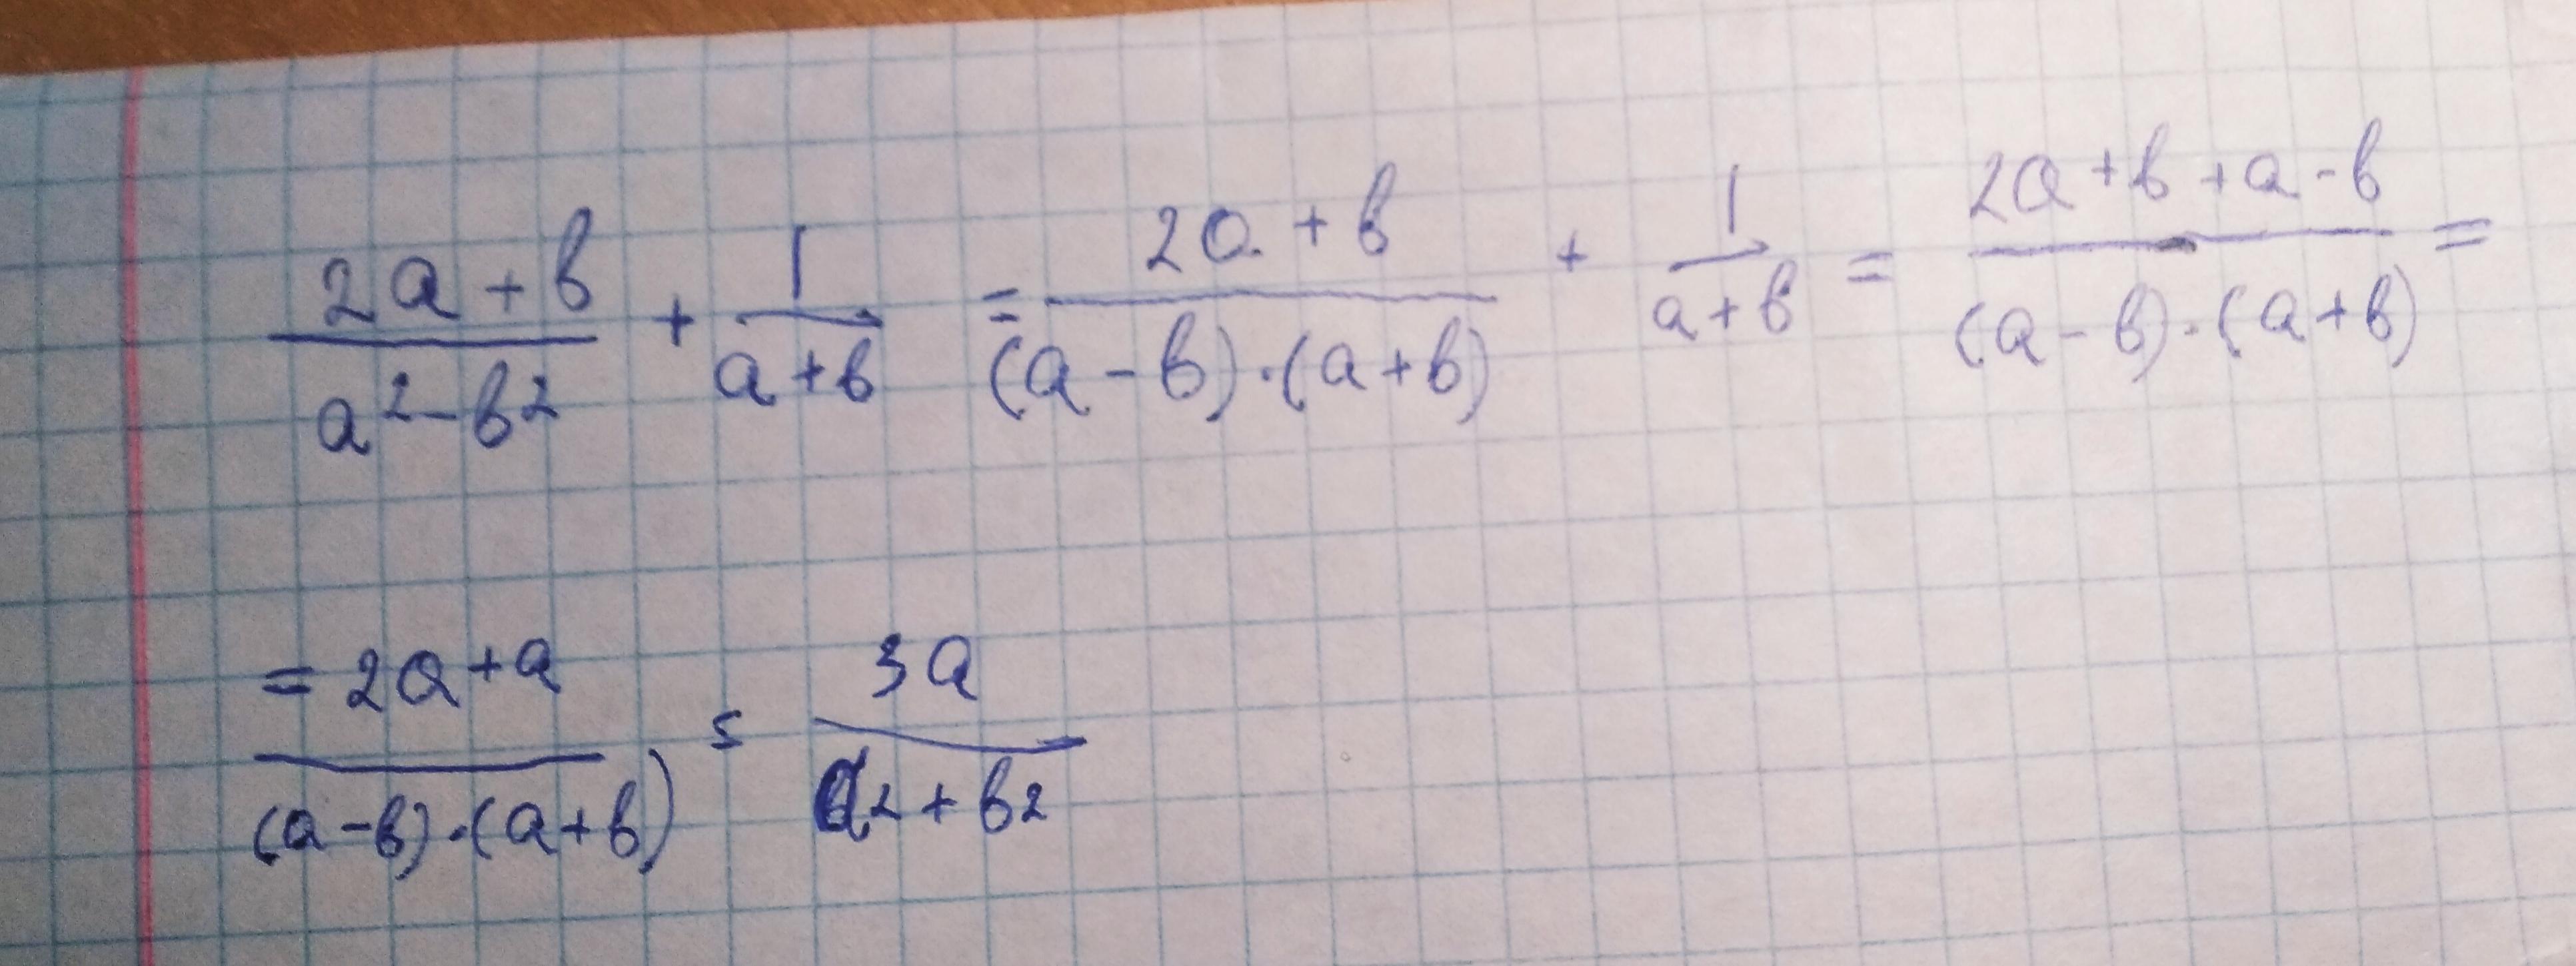 (2a+b)/(a²-b²) + 1/(a+b) = (2a+b)/((a-b)·(a+b)) + 1/(a+b) = (2a+b+a-b)/((a-b)·(a+b)) =
= (2a+a)/((a-b)·(a+b)) = 3a/(a2+b2)